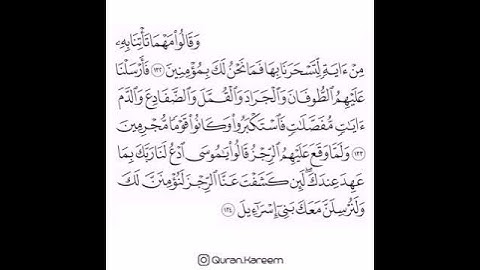 وَقَالُوا۟ مَهْمَا تَأْتِنَا بِهِۦ
مِنْ ءَايَةٍ لِّتَسْحَرَنَا بِهَا فَمَا نَحْنُ لَكَ بِمُؤْمِنِينَ ١٣٢ فَأَرْسَلْنَا
عَلَيْهِمُ ٱلطُّوفَانَ وَٱلْجَرَادَ وَٱلْقُمَّلَ وَٱلضَّفَادِعَ وَٱلدَّمَ
ءَايَٰتٍ مُّفَصَّلَٰتٍ فَٱسْتَكْبَرُوا۟ وَكَانُوا۟ قَوْمًا مُّجْرِمِينَ
١٣٣ وَلَمَّا وَقَعَ عَلَيْهِمُ ٱلرِّجْزُ قَالُوا۟ يَٰمُوسَى ٱدْعُ لَنَا رَبَّكَ بِمَا
عَهِدَ عِندَكَ لَئِن كَشَفْتَ عَنَّا ٱلرِّجْزَ لَنُؤْمِنَنَّ لَكَ
وَلَنُرْسِلَنَّ مَعَكَ بَنِىٓ إِسْرَٰٓءِيلَ ١٣٤
Quran.Kareem